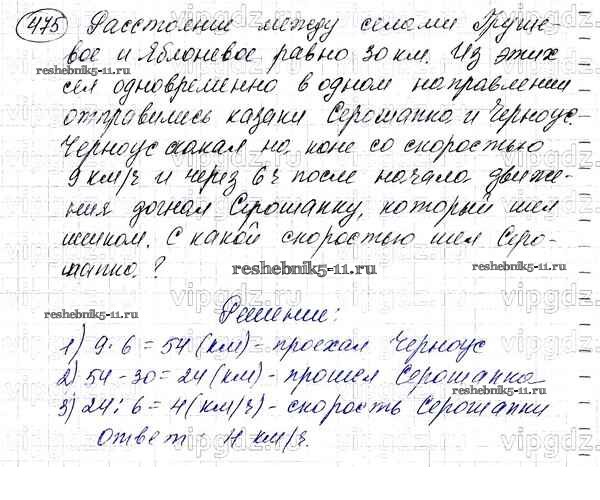 475 Расстояние между селами Груше-
вое и Яблоневое равно 30 км. Из этих
reshebnik5-11.ru
сел одновременно в одном направлении
отправились казаки Серошапка и Черноус.
Черноус скакал на коне со скоростью
9 км/ч и через 6 ч после начала движе-
ния догнал Серошапку, который шел
пешком. С какой скоростью шел Серо-
шапка?
reshebnik5-11.ru
reshebnik5-11.ru
Решение:
1) 9·6=54 (км) - проехал Черноус
2) 54-30=24 (км) - прошел Серошапка
3) 24:6=4 (км/ч) - скорость Серошапки
reshebnik5-11.ru
reshebnik5-11.ru
Ответ: 4 км/ч.
vipgdz